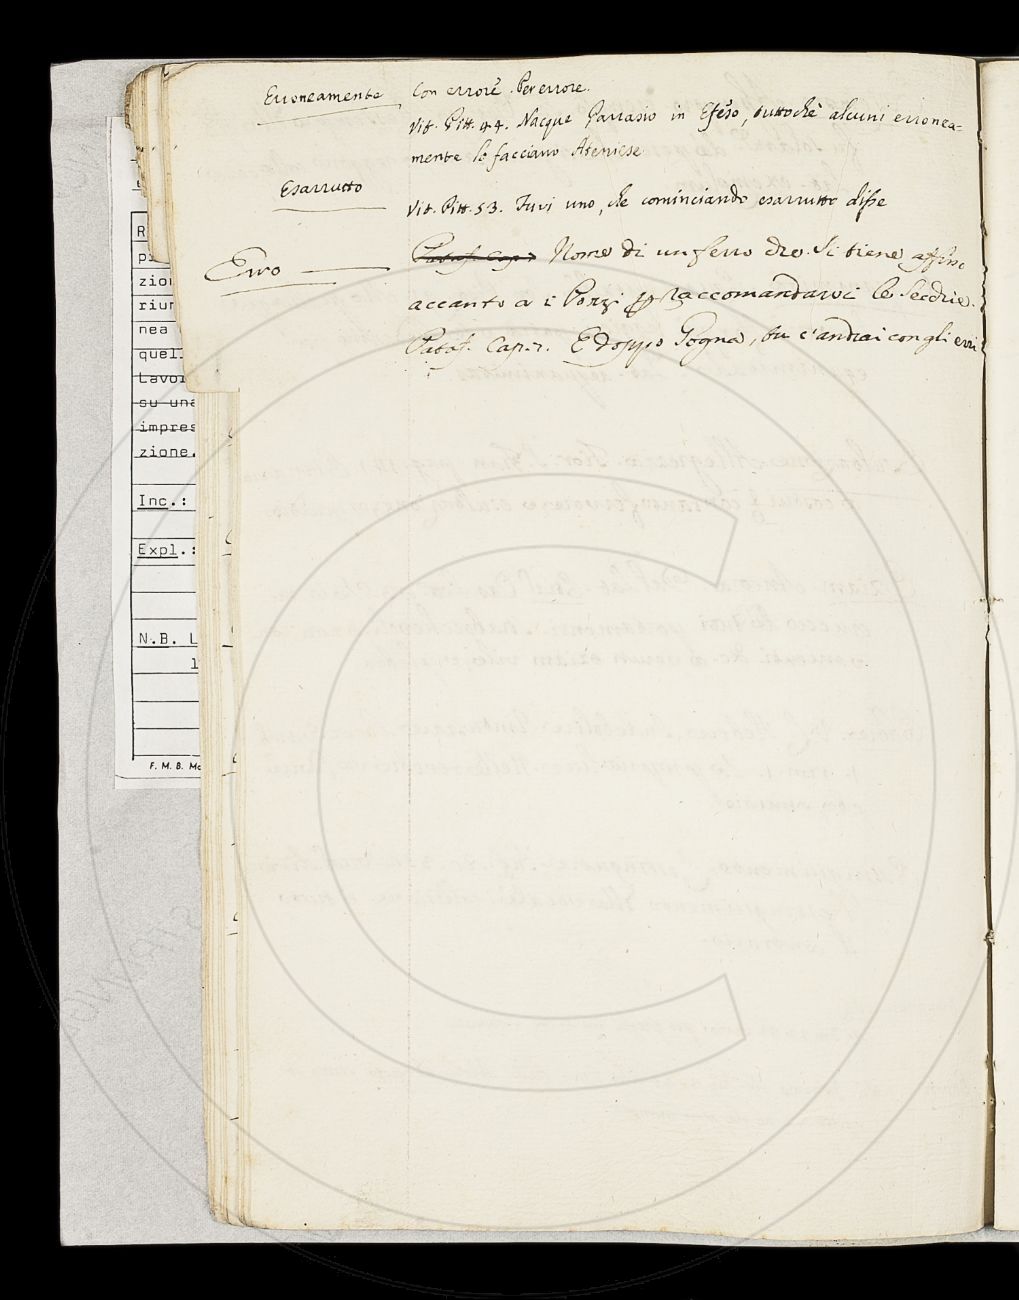 Erroneamente Con errore. Per errore.
Vit. Pitt. 44. Nacque Parrasio in Efeso, tuttochè alcuni erronea=
mente lo facciano Ateniese
Esarrutto
Vit. Pitt. 53. Fuvi uno, che cominciando esarrutto disse
Erro Pataf. Cap. 7 Nome di un ferro che si tiene affisso
accanto a i Pozzi p raccomandarvi le Secchie.
Pataf. Cap. 7. E doppio Pogna, tu c'andrai con gli erri
R
p
zion
riun
nea
quel
Lavor
su una
impres
zione.
Inc.:
Expl.:
N.B. L
1
F. M. B. Mo